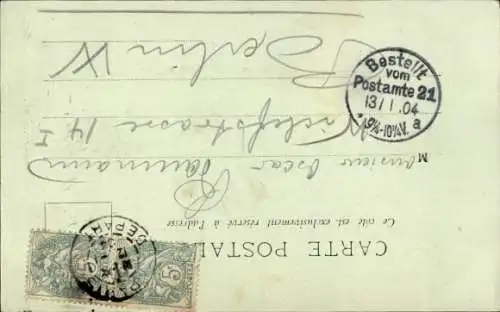 CARTE POSTALE
Ce côté est exclusivement réservé à l'adresse
Monsieur Oscar
Baumann
14 I
Berlin W
Bestellt
vom
Postamte 21
13/1.04
9¼-10¼V.
a
5
5